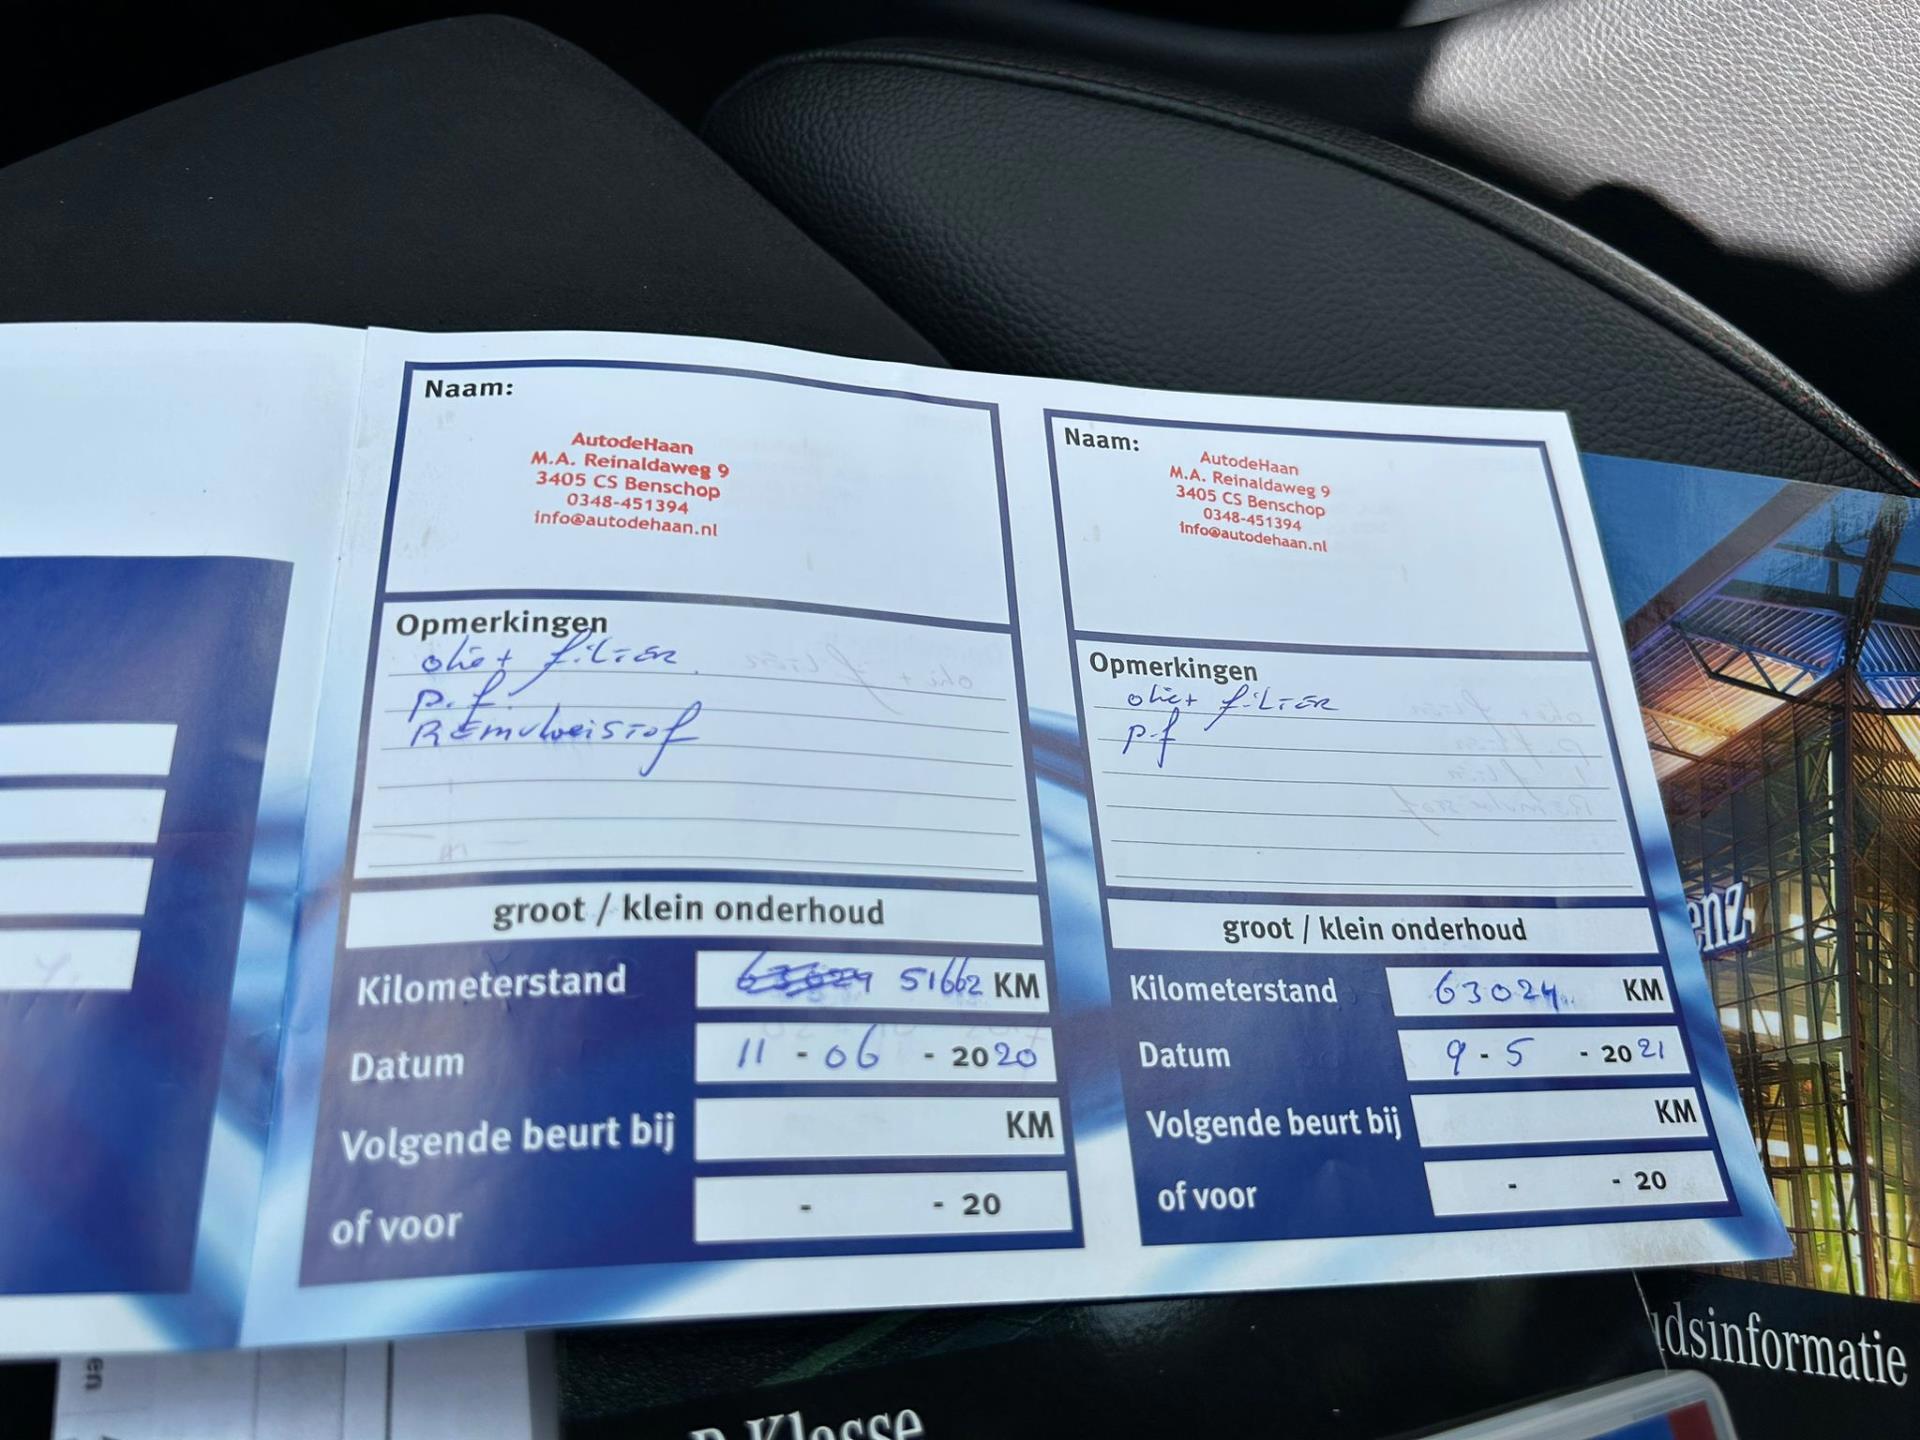 Naam:
AutodeHaan
M.A. Reinaldaweg 9
3405 CS Benschop
0348-451394
info@autodehaan.nl
Opmerkingen
olie + filter
p.f.
Remvloeistof
groot / klein onderhoud
Kilometerstand 63024 51662 KM
Datum 11 - 06 - 2020
Volgende beurt bij KM
of voor - - 20
Naam:
AutodeHaan
M.A. Reinaldaweg 9
3405 CS Benschop
0348-451394
info@autodehaan.nl
Opmerkingen
olie + filter
p.f
groot / klein onderhoud
Kilometerstand 63024 KM
Datum 9 - 5 - 2021
Volgende beurt bij KM
of voor - - 20
enz
udsinformatie
Klasse
en